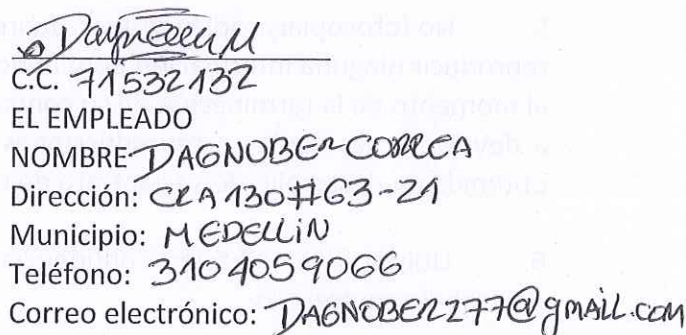 C.C. 71532132
EL EMPLEADO
NOMBRE DAGNOBER CORREA
Dirección: CRA 130 #63-21
Municipio: MEDELLIN
Teléfono: 3104059066
Correo electrónico: DAGNOBER277@gmail.com